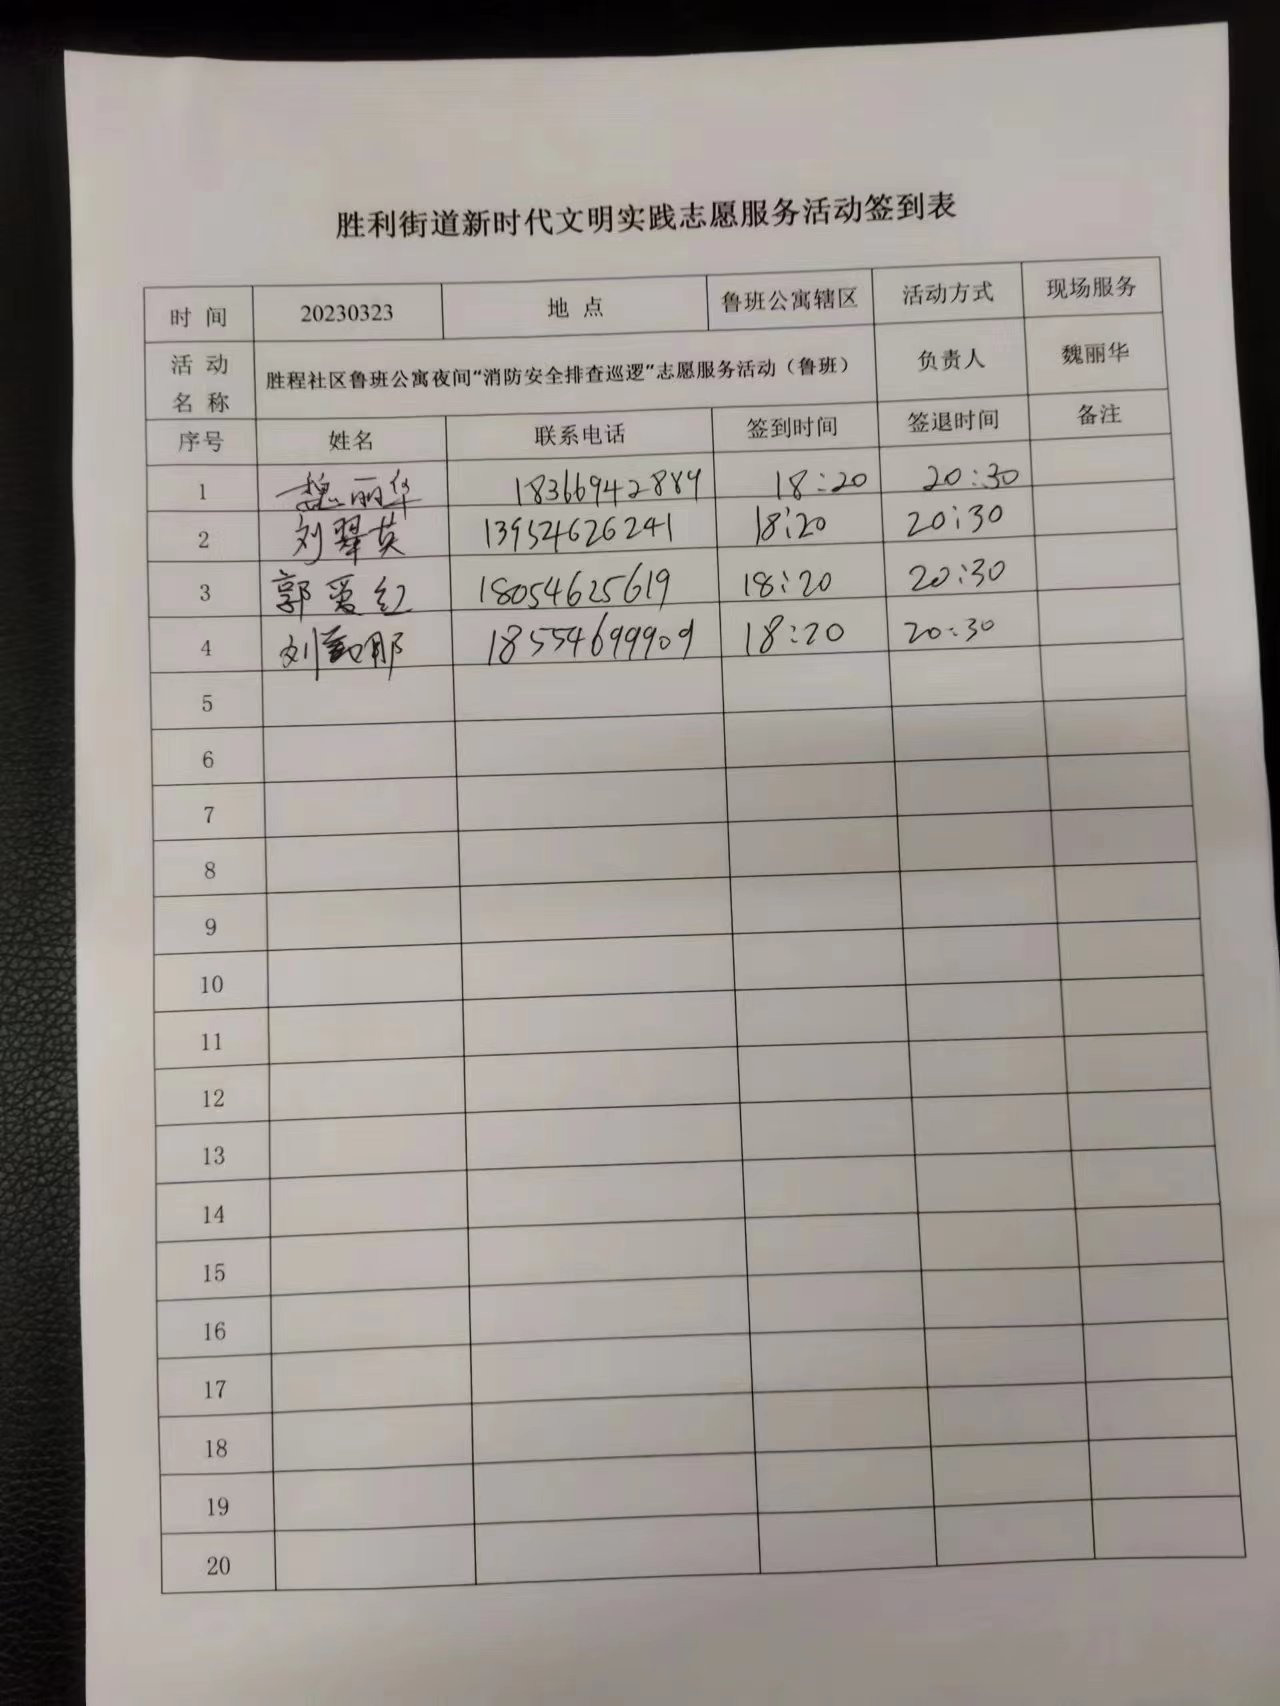 胜利街道新时代文明实践志愿服务活动签到表
时 间 20230323 地 点 鲁班公寓辖区 活动方式 现场服务
活 动 名 称 胜程社区鲁班公寓夜间“消防安全排查巡逻”志愿服务活动（鲁班） 负责人 魏丽华
序号 姓名 联系电话 签到时间 签退时间 备注
1 魏丽华 18366942889 18:20 20:30
2 刘翠英 13954626241 18:20 20:30
3 郭爱红 18054625619 18:20 20:30
4 刘 那 18554699909 18:20 20:30
5
6
7
8
9
10
11
12
13
14
15
16
17
18
19
20